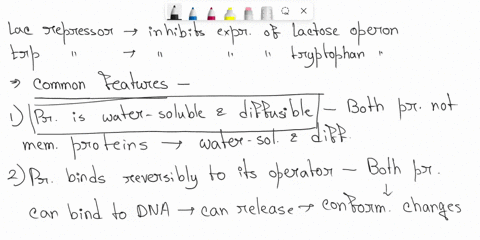 Lac repressor → inhibits expr. of lactose operon
trp " → " " " tryptophan "
⇒ Common features –
1) Pr. is water-soluble & diffusible – Both pr. not
mem. proteins → water-sol. & diff.
2) Pr. binds reversibly to its operator – Both pr.
↓
can bind to DNA → can release → conform. changes